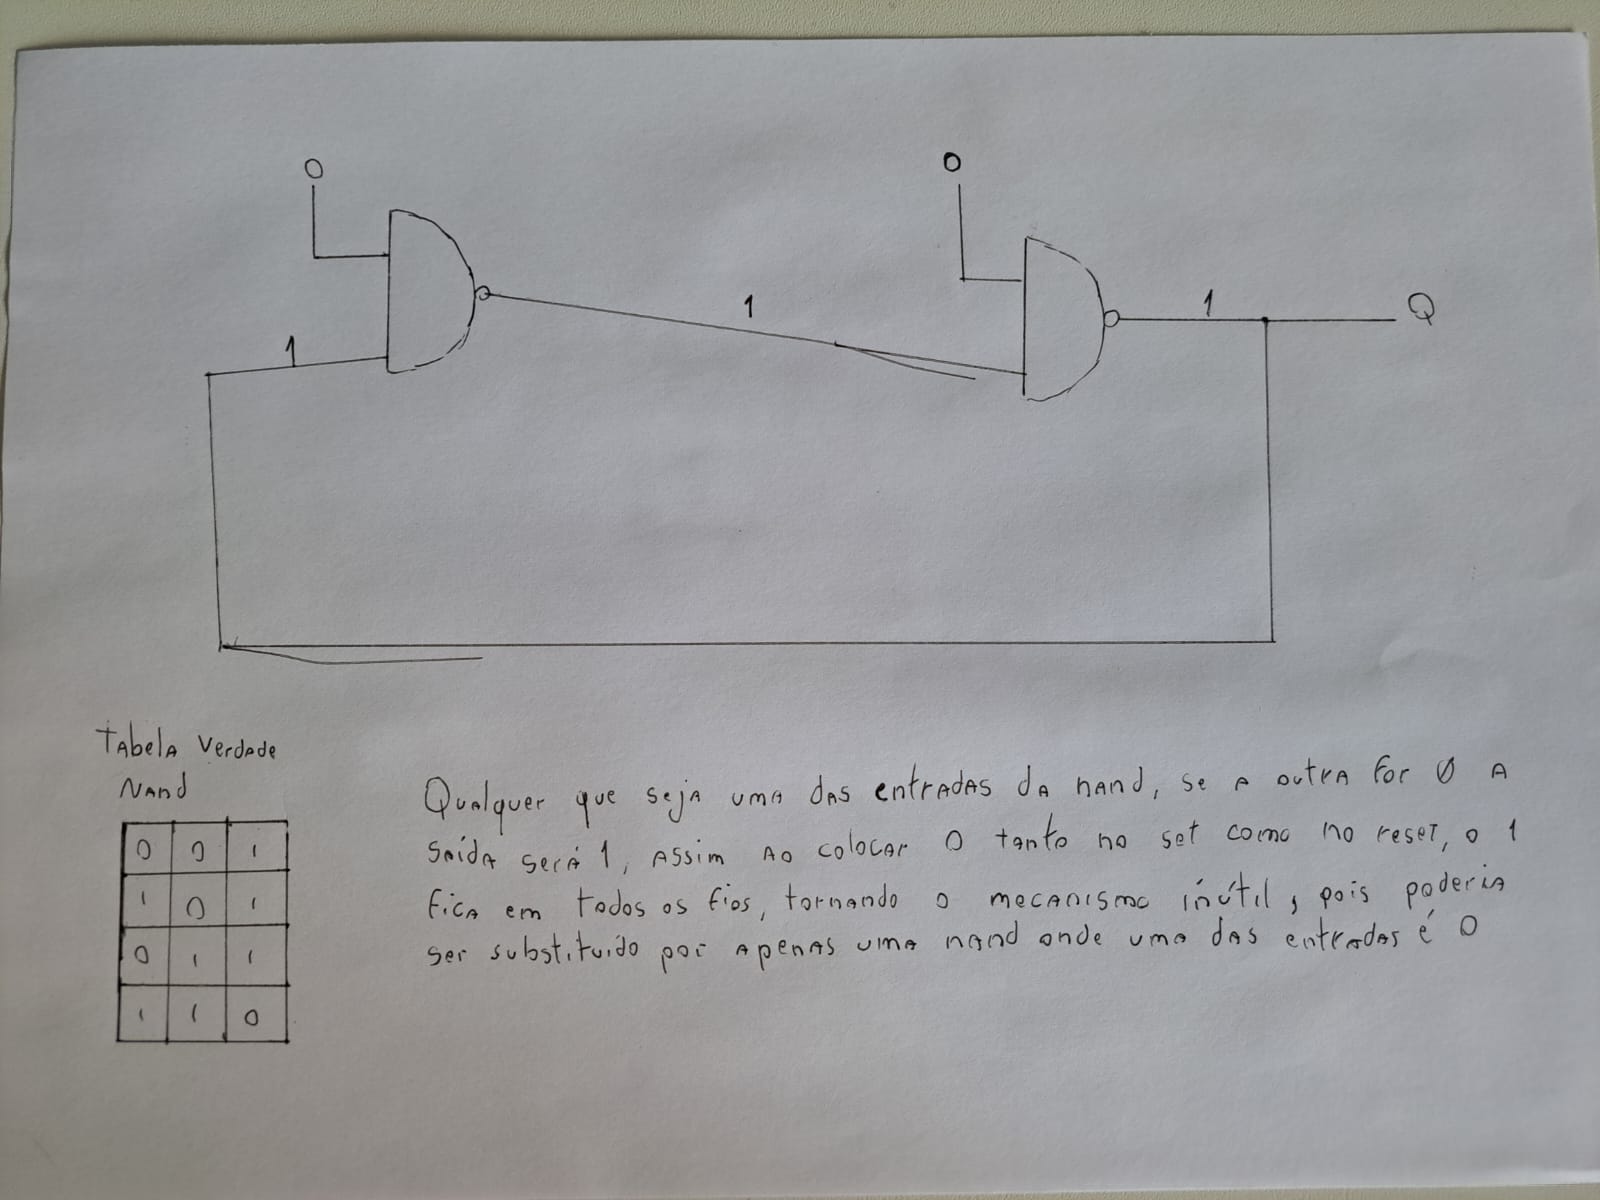 0 0
1 1 1 Q
Tabela Verdade
Nand
0 0 1
1 0 1
0 1 1
1 1 0
Qualquer que seja uma das entradas da nand, se a outra for 0 a
saída será 1, assim ao colocar 0 tanto no set como no reset, o 1
fica em todos os fios, tornando o mecanismo inútil, pois poderia
ser substituído por apenas uma nand onde uma das entradas é 0